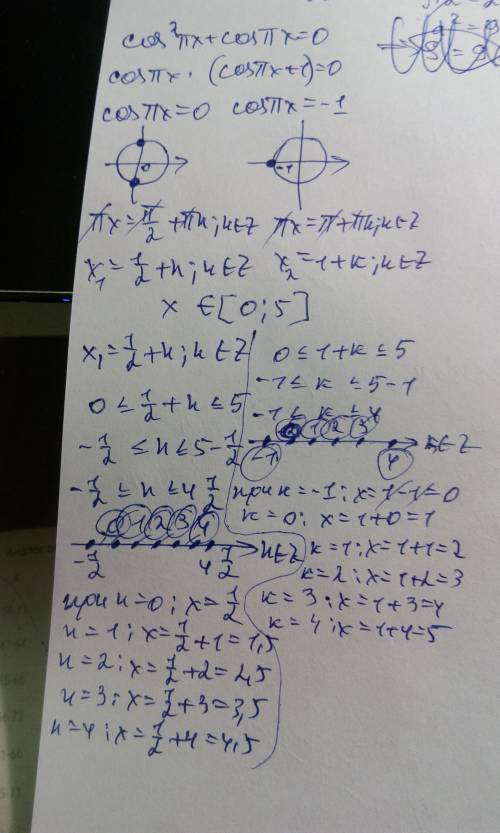 cos²πx+cosπx=0
cosπx · (cosπx+1)=0
cosπx=0 cosπx=-1
0 -1
πx=π/2+πn; n∈Z πx=π+πk; k∈Z
x₁=1/2+n; n∈Z x₂=1+k; k∈Z
x ∈[0;5]
x₁=1/2+n; n∈Z
0≤1/2+n≤5
-1/2≤n≤5-1/2
-1/2≤n≤4 1/2
0 1 2 3 4
-1/2 4 1/2 n∈Z
при n=0; x=1/2
n=1; x=1/2+1=1,5
n=2; x=1/2+2=2,5
n=3; x=1/2+3=3,5
n=4; x=1/2+4=4,5
0≤1+k≤5
-1≤k≤5-1
-1≤k≤4
0 1 2 3
-1 4 k∈Z
при k=-1; x=1-1=0
k=0; x=1+0=1
k=1; x=1+1=2
k=2; x=1+2=3
k=3; x=1+3=4
k=4; x=1+4=5